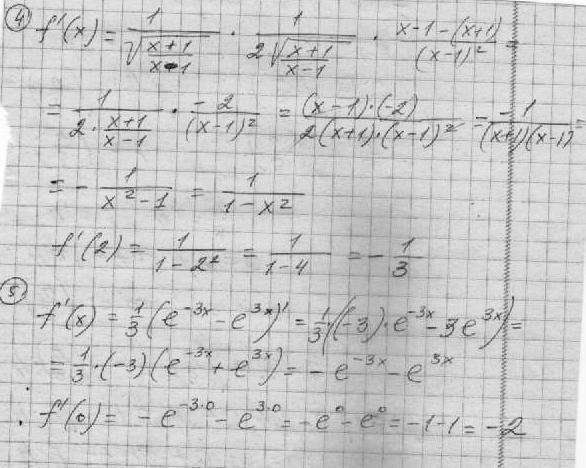 ④ f'(x) = 1/√((x+1)/(x-1)) · 1/(2√((x+1)/(x-1))) · (x-1-(x+1))/(x-1)² =
= 1/(2·(x+1)/(x-1)) · (-2)/(x-1)² = ((x-1)·(-2))/(2(x+1)·(x-1)²) = (-1)/((x+1)(x-1)) =
= - 1/(x²-1) = 1/(1-x²)
f'(2) = 1/(1-2²) = 1/(1-4) = - 1/3
⑤
f'(x) = 1/3 (e^(-3x) - e^(3x))' = 1/3 ((-3)·e^(-3x) - 3e^(3x)) =
= 1/3 ·(-3)(e^(-3x) + e^(3x)) = - e^(-3x) - e^(3x)
f'(0) = - e^(-3·0) - e^(3·0) = -e⁰ - e⁰ = -1-1 = -2